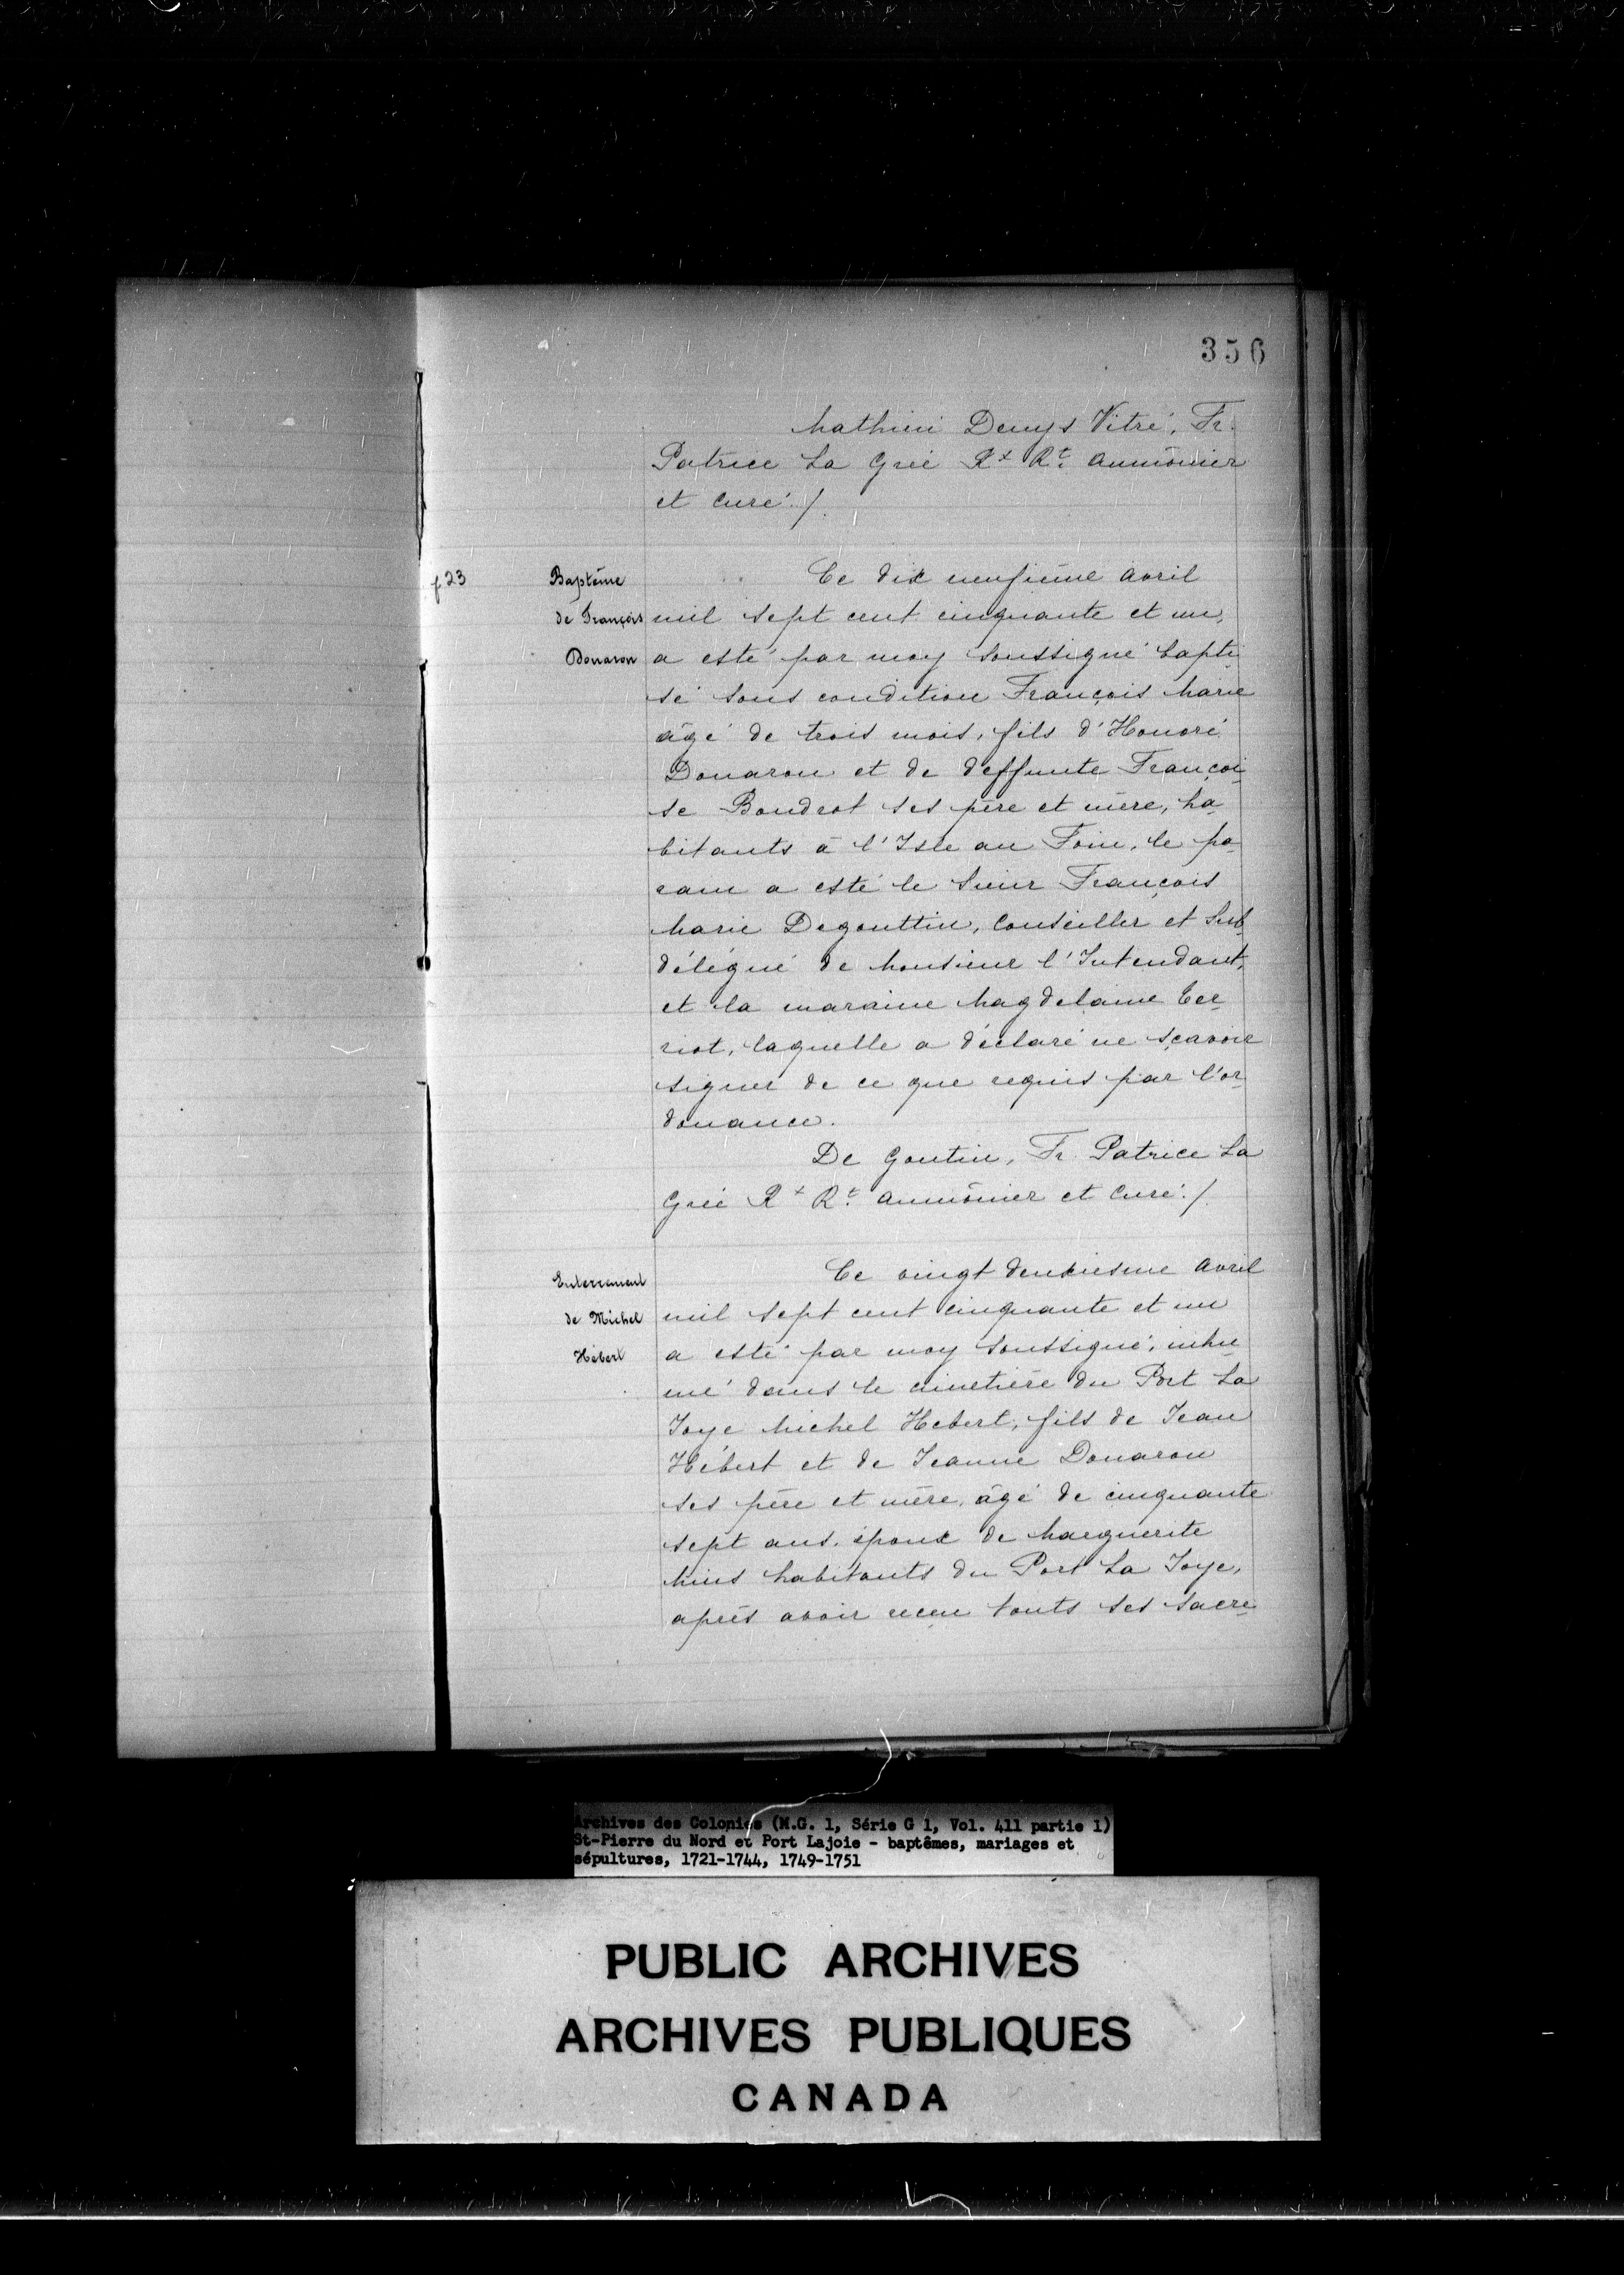 356
Mathieu Denys Vitré, Fr.
Patrice La Grée Rx Rt. aumônier
et curé ./.
f. 23
Baptême
de François
Douaron
Ce dix neufième avril
mil sept cent cinquante et un,
a esté par moy soussigné bapti
sé sous condition François Marie
âgé de trois mois, fils d'Honoré
Douaron et de deffunte Françoi
se Boudrot ses père et mère, ha
bitants à l'Isle au Foin, le pa
rain a esté le sieur François
Marie Degouttin, Conseiller et Sub
délégué de Monsieur l'Intendant,
et la maraine Magdelaine Ter
riot, laquelle a déclaré ne sçavoir
signer de ce que requis par l'or
donance.
De Goutin, Fr. Patrice La
Grée Rx Rt. aumônier et curé ./.
Enterrement
de Michel
Hébert
Ce vingt deuxiesme avril
mil sept cent cinquante et un
a esté par moy soussigné, inhu
mé dans le cimetière du Port La
Joye Michel Hebert, fils de Jean
Hébert et de Jeanne Douaron
ses père et mère, âgé de cinquante
sept ans, époux de Marguerite
Mius habitants du Port La Joye,
après avoir receu touts ses sacre
Archives des Colonies (M.G. 1, Série G 1, Vol. 411 partie 1)
St-Pierre du Nord et Port Lajoie - baptêmes, mariages et
sépultures, 1721-1744, 1749-1751
PUBLIC ARCHIVES
ARCHIVES PUBLIQUES
CANADA